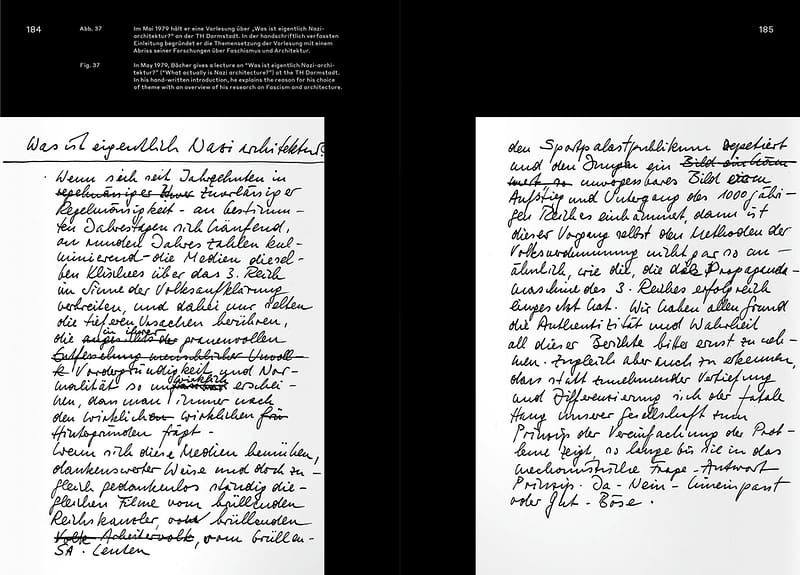 184
Abb. 37
Im Mai 1979 hält er eine Vorlesung über „Was ist eigentlich Nazi-
architektur?“ an der TH Darmstadt. In der handschriftlich verfassten
Einleitung begründet er die Themensetzung der Vorlesung mit einem
Abriss seiner Forschungen über Faschismus und Architektur.
Fig. 37
In May 1979, Bächer gives a lecture on “Was ist eigentlich Nazi-archi-
tektur?” (“What actually is Nazi architecture?”) at the TH Darmstadt.
In his hand-written introduction, he explains the reason for his choice
of theme with an overview of his research on Fascism and architecture.
Was ist eigentlich Nazi architektur?
Wenn sich seit Jahrzehnten in
regelmässiger zuverlässiger
Regelmässigkeit - an bestimm-
ten Jahrestagen sich häufend,
an runden Jahreszahlen kul-
minierend - die Medien diesel-
ben Klischees über das 3. Reich
im Sinne der Volksaufklärung
verbreiten, und dabei nur selten
die tieferen Ursachen berühren,
die angesichts der in ihrer grauenvollen
Vordergründigkeit und Nor-
malität so unwirklich erschei-
nen, dass man immer nach
den wirklichen wirklichen
Hintergründen fragt -
Wenn sich diese Medien bemühen,
dankenswerter Weise und doch zu-
gleich gedankenlos ständig die-
gleichen Filme vom brüllenden
Reichskanzler, vom brüllenden
Volk Arbeitervolk, vom brüllen-
SA - Leuten
185
den Sportpalastpublikum repetiert
und den Jungen ein Bild ein
unvergessbares Bild von
Aufstieg und Untergang des 1000 jähri-
gen Reiches einhämmert, dann ist
dieser Vorgang selbst den Methoden der
Volksverdummung nicht gar so un-
ähnlich, wie die, die die Propaganda-
maschine des 3. Reiches erfolgreich
eingesetzt hat. Wir haben allen Grund
die Authentizität und Wahrheit
all dieser Berichte bitter ernst zu neh-
men. Zugleich aber auch zu erkennen,
dass statt zunehmender Vertiefung
und Differenzierung sich der fatale
Hang unserer Gesellschaft zum
Prinzip der Vereinfachung der Prob-
leme zeigt, so lange bis sie in das
mechanistische Frage-Antwort
Prinzip. Ja - Nein - hineinpasst
oder Gut - Böse.